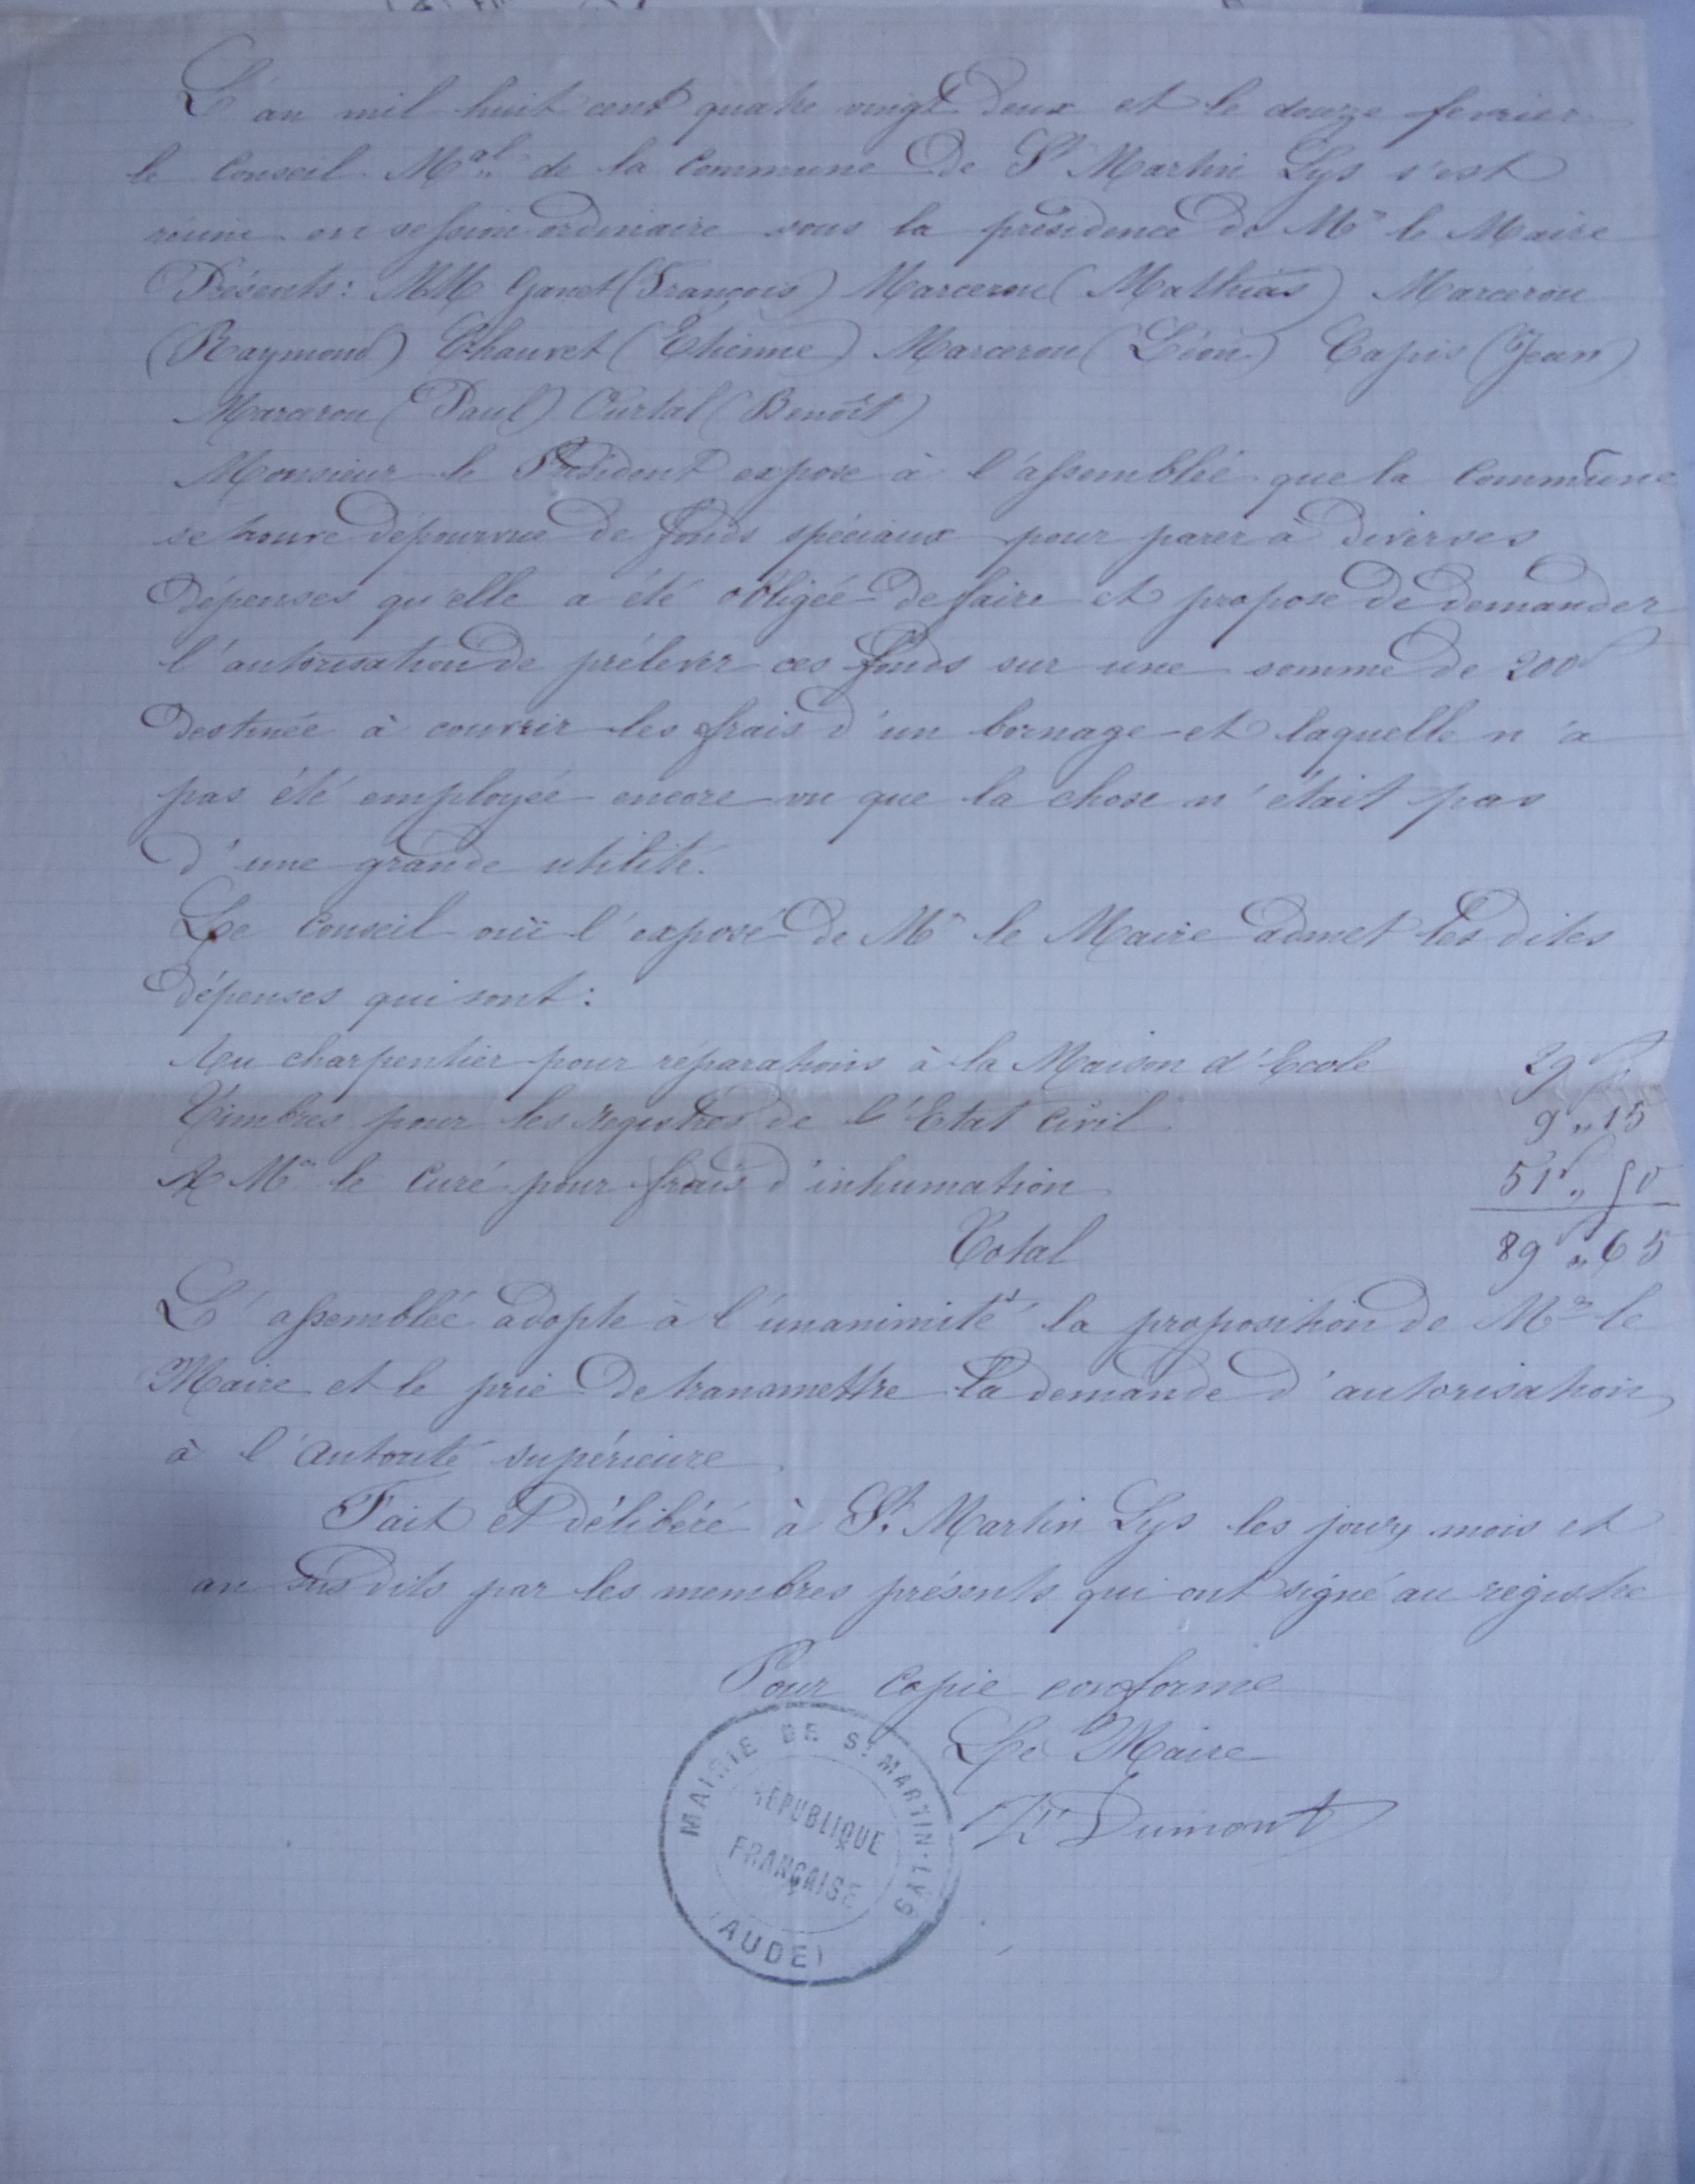 L'an mil huit cent quatre vingt deux et le douze fevrier
le Conseil Mal de la Commune de St Martin Lys s'est
réuni en session ordinaire sous la présidence de Mr le Maire
Présents: MM Ganet (François) Marcerou (Mathias) Marcerou
(Raymond) Chauvet (Etienne) Marcerou (Léon) Capis (Jean)
Marcerou (Paul) Curtal (Benoît)
Monsieur le Président expose à l'assemblée que la Commune
se trouve dépourvue de fonds spéciaux pour parer à diverses
dépenses qu'elle a été obligée de faire et propose de demander
l'autorisation de prélever ces fonds sur une somme de 200f
destinée à couvrir les frais d'un bornage et laquelle n'a
pas été employée encore vu que la chose n'était pas
d'une grande utilité.
Le Conseil ouï l'exposé de Mr le Maire admet les dites
dépenses qui sont:
Au charpentier pour réparations à la Maison d'Ecole 29f
Timbres pour les registres de l'Etat Civil 9f,,15
A Mr le Curé pour frais d'inhumation 51f,,50
Total 89f,,65
L'assemblée adopte à l'unanimité la proposition de Mr le
Maire et le prie de transmettre la demande d'autorisation
à l'autorité supérieure
Fait et délibéré à St Martin Lys les jour, mois et
an sus dits par les membres présents qui ont signé au registre
Pour copie conforme
Le Maire
Dumont
MAIRIE DE St MARTIN-LYS
REPUBLIQUE
FRANÇAISE
(AUDE)